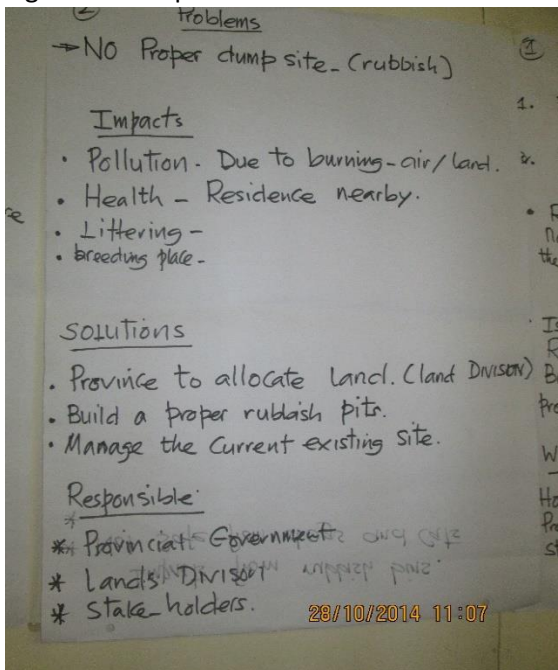 ②
Problems
→ No Proper dump site - (rubbish)
Impacts
• Pollution - Due to burning - air/land.
• Health - Residence nearby.
• Littering -
• breeding place -
SOLUTIONS
• Province to allocate Land. (land Division)
• Build a proper rubbish pits.
• Manage the Current existing site.
Responsible
*
* Provincial Government
* Lands Division
* Stake-holders.
28/10/2014 11:07
①
1.
2.